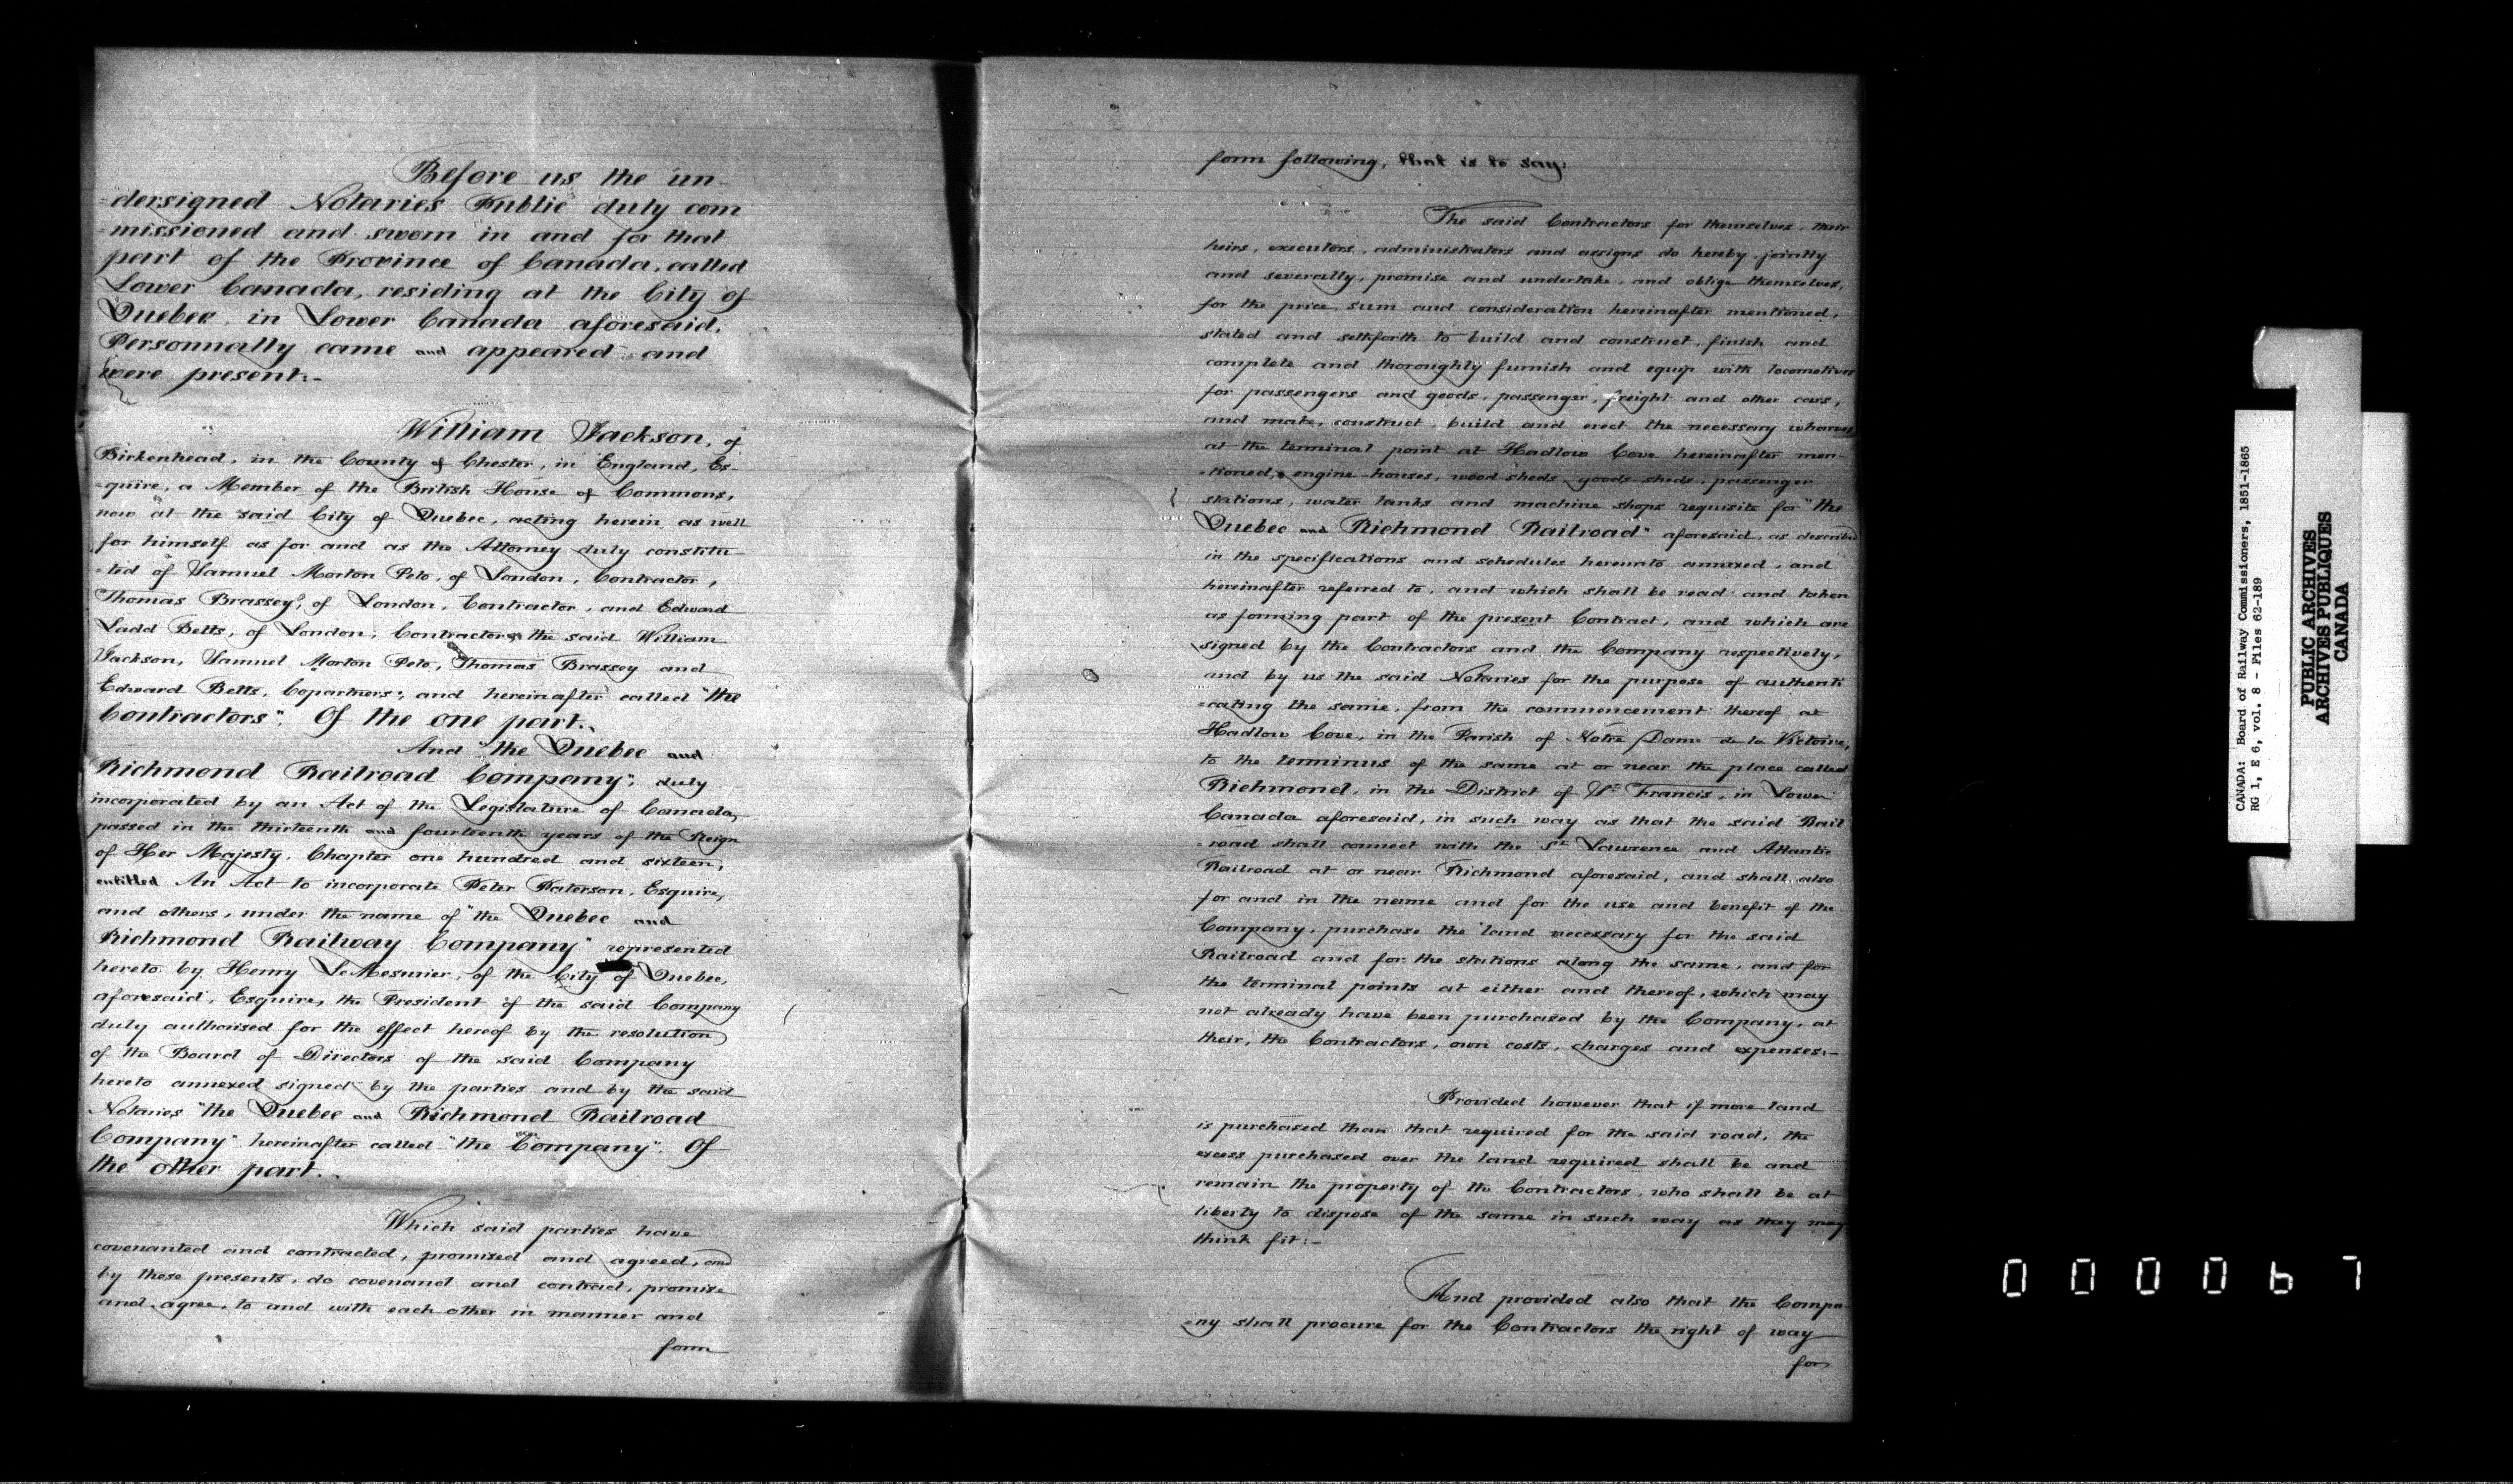 Before us the un
=dersigned Notaries Public duly com
=missioned and sworn in and for that
part of the Province of Canada, called
Lower Canada, residing at the City of
Quebec, in Lower Canada aforesaid,
Personnally came and appeared and
were present:-
William Jackson, of
Birkenhead, in the County of Chester, in England, Es-
=quire, a Member of the British House of Commons,
now at the said City of Quebec, acting herein as well
for himself as for and as the Attorney duly constitu-
=ted of Samuel Morton Peto, of London, Contractor,
Thomas Brassey, of London, Contractor, and Edward
Ladd Betts, of London, Contractor, the said William
Jackson, Samuel Morton Peto, Thomas Brassey and
Edward Betts, Copartners, and hereinafter called "the
Contractors". Of the one part.
And "the Quebec and
Richmond Railroad Company", duly
incorporated by an Act of the Legislature of Canada,
passed in the thirteenth and fourteenth years of the Reign
of Her Majesty, Chapter one hundred and sixteen,
entitled An Act to incorporate Peter Paterson, Esquire,
and others, under the name of "the Quebec and
Richmond Railway Company" represented
hereto by Henry LeMesurier, of the City of Quebec,
aforesaid, Esquire, the President of the said Company
duly authorised for the effect hereof by the resolution
of the Board of Directors of the said Company
hereto annexed signed by the parties and by the said
Notaries "the Quebec and Richmond Railroad
Company" hereinafter called "the Company". Of
the other part.
Which said parties have
covenanted and contracted, promised and agreed, and
by these presents, do covenand and contract, promise
and agree, to and with each other in manner and
form
form following, that is to say:
The said Contractors for themselves, their
heirs, executors, administrators and assigns do hereby, jointly
and severally, promise and undertake, and oblige themselves,
for the price, sum and consideration hereinafter mentioned,
stated and setforth to build and construct, finish and
complete and thoroughly furnish and equip with locomotives
for passengers and goods, passenger, freight and other cars,
and make, construct, build and erect the necessary wharves
at the terminal point at Hadlow Cove hereinafter men-
=tioned, engine-houses, wood-sheds, goods-sheds, passenger
stations, water tanks and machine shops requisite for "the
Quebec and Richmond Railroad" aforesaid, as described
in the specifications and schedules hereunto annexed, and
hereinafter referred to, and which shall be read and taken
as forming part of the present Contract, and which are
signed by the Contractors and the Company respectively,
and by us the said Notaries for the purpose of authenti
=cating the same, from the commencement thereof at
Hadlow Cove, in the Parish of Notre Dame de la Victoire,
to the terminus of the same at or near the place called
Richmond, in the District of St Francis, in Lower
Canada aforesaid, in such way as that the said Rail
=road shall connect with the St Lawrence and Atlantic
Railroad at or near Richmond aforesaid, and shall also
for and in the name and for the use and benefit of the
Company, purchase the land necessary for the said
Railroad and for the stations along the same, and for
the terminal points at either and thereof, which may
not already have been purchased by the Company, at
their, the Contractors, own costs, charges and expenses:-
Provided however that if more land
is purchased than that required for the said road, the
excess purchased over the land required shall be and
remain the property of the Contractors, who shall be at
liberty to dispose of the same in such way as they may
think fit:-
And provided also that the Compa-
=ny shall procure for the Contractors the right of way
for
CANADA: Board of Railway Commissioners, 1851-1865
RG 1, E 6, vol. 8 - Files 62-189
PUBLIC ARCHIVES
ARCHIVES PUBLIQUES
CANADA
000067